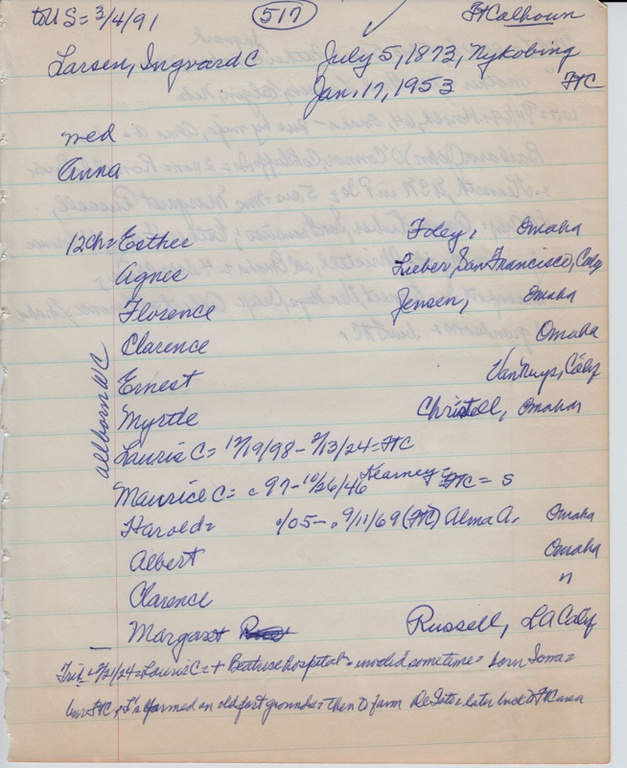 to US = 3/4/91 517 FtCalhoun
Larsen, Ingvard C July 5, 1873, Nykobing
Jan. 17, 1953 FtC
wed
Anna
12Ch = Esther Foley, Omaha
Agnes Lieber, San Francisco, Calif
Florence Jensen, Omaha
Clarence Omaha
all born WC
Ernest Van Nuys, Calif
Myrtle Christell, Omaha
Lauris C = 12/19/98 - 2/13/24 = FtC
Maurice C = c 97 - 10/26/46 Kearney = FtC = S
Harold = c/05 - c 9/11/69 (FtC) Alma A. Omaha
Albert Omaha
Clarence "
Margaret Russell, LA Calif
Trib = 2/21/24 = Lauris C = + Beatrice hospital = invalid sometime = born Iowa =
bur FtC, + I's farmed on old fort grounds = then to farm DeSoto = later back to FtC area